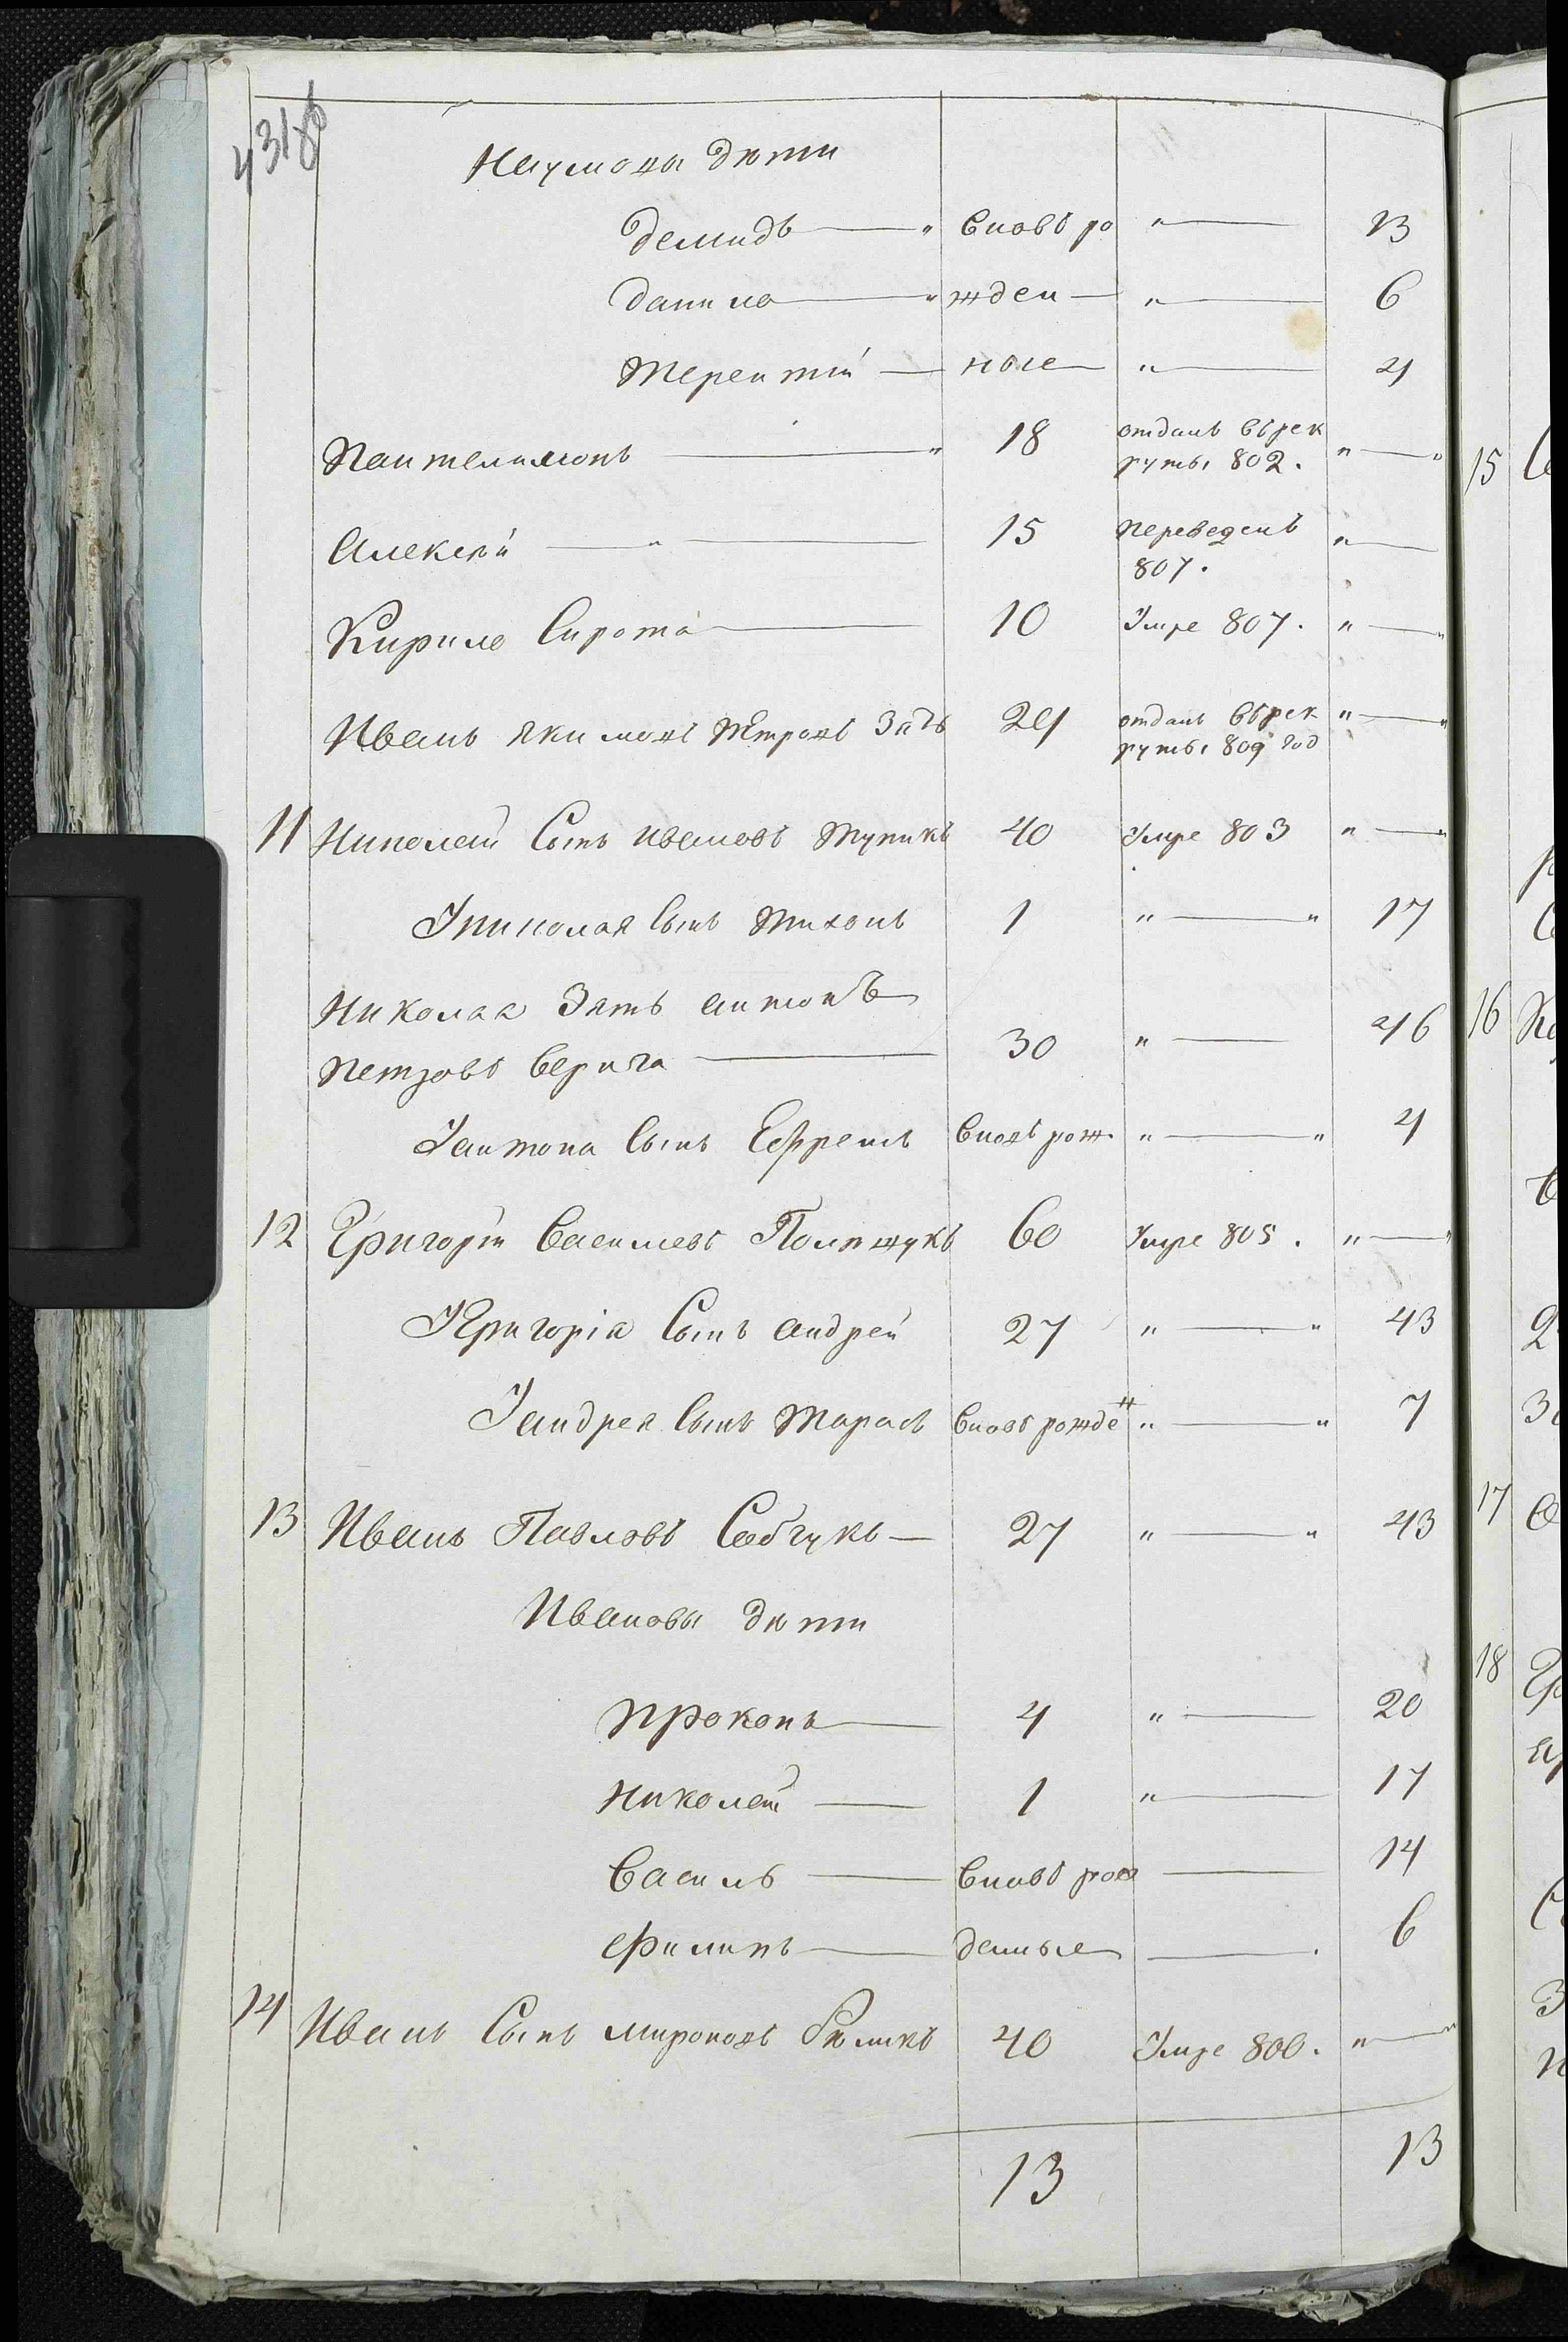 431об
Наумовы дѣти
Демидъ вновь ро " 13
Данило жден " 6
Терентій ные " 4
Пантелимонъ 18 отданъ въ рек "
руты 802.
Алексѣй 15 переведенъ "
807.
Кирило Сирота 10 Умре 807. "
Иванъ Якимовъ Петровъ Зять 24 отданъ въ рек "
руты 809 год
11 Николай Сынъ Ивановъ Тупикъ 40 Умре 803 "
У Николая Сынъ Тихонъ 1 " 17
Николая Зять Антонъ
Петровъ Верига 30 " 46
У Антона Сынъ Ефремъ вновь рож. " 4
12 Григорій Васильевъ Полищукъ 60 Умре 805. "
У Григорія Сынъ Андрей 27 " 43
У Андрея Сынъ Тарасъ вновь рожден " 7
13 Иванъ Павловъ Собчукъ 27 " 43
Ивановы дѣти
Прокопъ 4 " 20
Николай 1 " 17
Василь вновь рож 14
Филипъ денные 6
14 Иванъ Сынъ Мироновъ 40 Умре 800. "
13 13
15
16
17
18